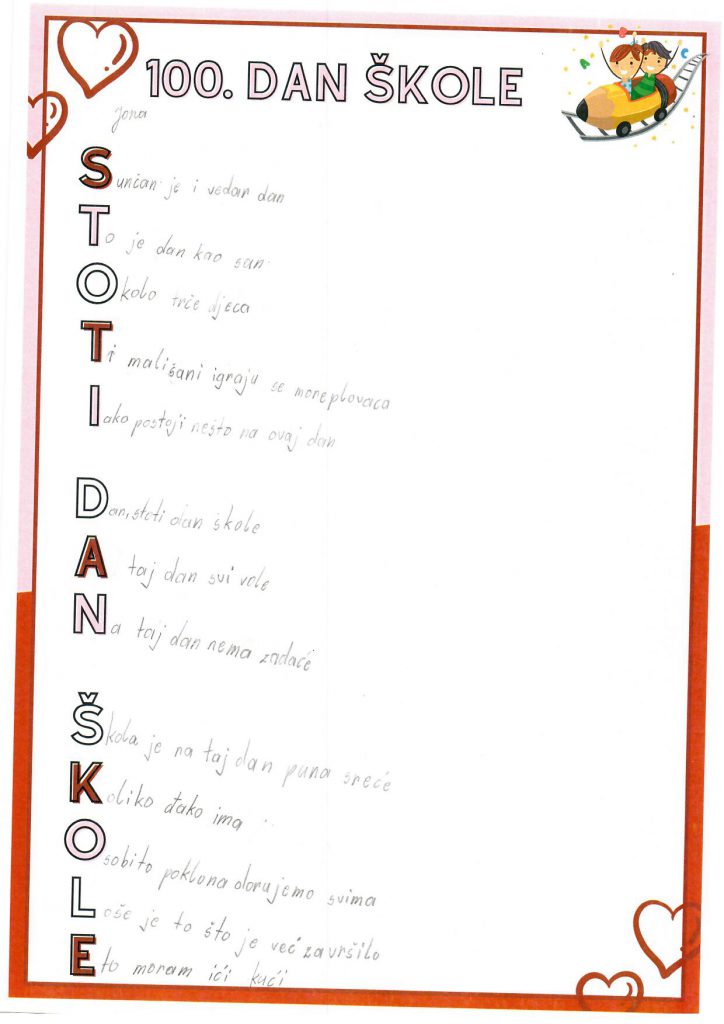 100. DAN ŠKOLE
A B C
Jona
Sunčan je i vedar dan
To je dan kao san
Okolo trče djeca
Ti mališani igraju se moreplovaca
Iako postoji nešto na ovaj dan
Dan, stoti dan škole
A taj dan svi vole
Na taj dan nema zadaće
Škola je na taj dan puna sreće
Koliko đako ima
Osobito poklona dorujemo svima
Loše je to što je već završilo
Eto moram ići kući